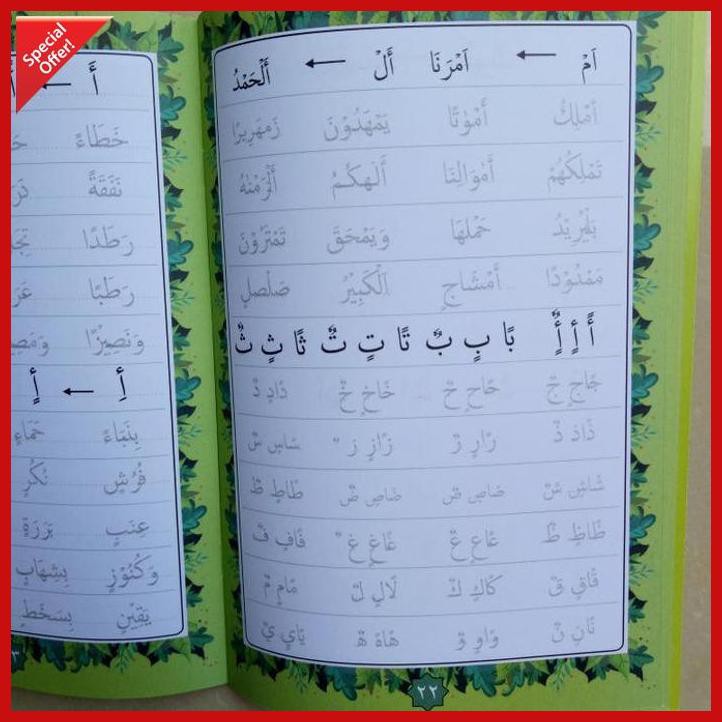 Special
Offer!
اَمْ ← اَمْرَنَا اَلْ ← اَلْحَمْدُ
اَمْلِكُ اَمْوٰتًا يَمْهَدُوْنَ زَمْهَرِيْرًا
تَمْلِكُهُمْ اَمْوَالِنَا
حَمْلَهَا وَيَمْحَقَ تَمْتَرُوْنَ
مَمْدُوْدًا اَمْشَاجٍ اَلْكَبِيْرُ صَلْصٰلٍ
اً اٍ اٌ بًا بٍ بٌ تًا تٍ تٌ ثًا ثٍ ثٌ
جًاجٍ جٌ حًاحٍ حٌ خًاخٍ خٌ دًادٍ دٌ
ذًاذٍ ذٌ رًارٍ رٌ زًازٍ زٌ سًاسٍ سٌ
شًاشٍ شٌ صًاصٍ صٌ ضًاضٍ ضٌ طًاطٍ طٌ
ظًاظٍ ظٌ عًاعٍ عٌ غًاغٍ غٌ فًافٍ فٌ
قًاقٍ قٌ كًاكٍ كٌ لًالٍ لٌ مًامٍ مٌ
نًانٍ نٌ وًاوٍ وٌ هًاهٍ هٌ يًايٍ يٌ
٢٢
اَ ←
خَطَاءً
نَفَقَةً
رَصَدًا
رَطَبًا
وَنَصِيْرًا
اِ ← اٍ
بِنَمَاءٍ
فُرُشٍ نُكُرٍ
عِنَبٍ بَرَرَةٍ
وَكُنُوْزٍ بِشِهَابٍ
يَقِيْنٍ بِسَخَطٍ
٣